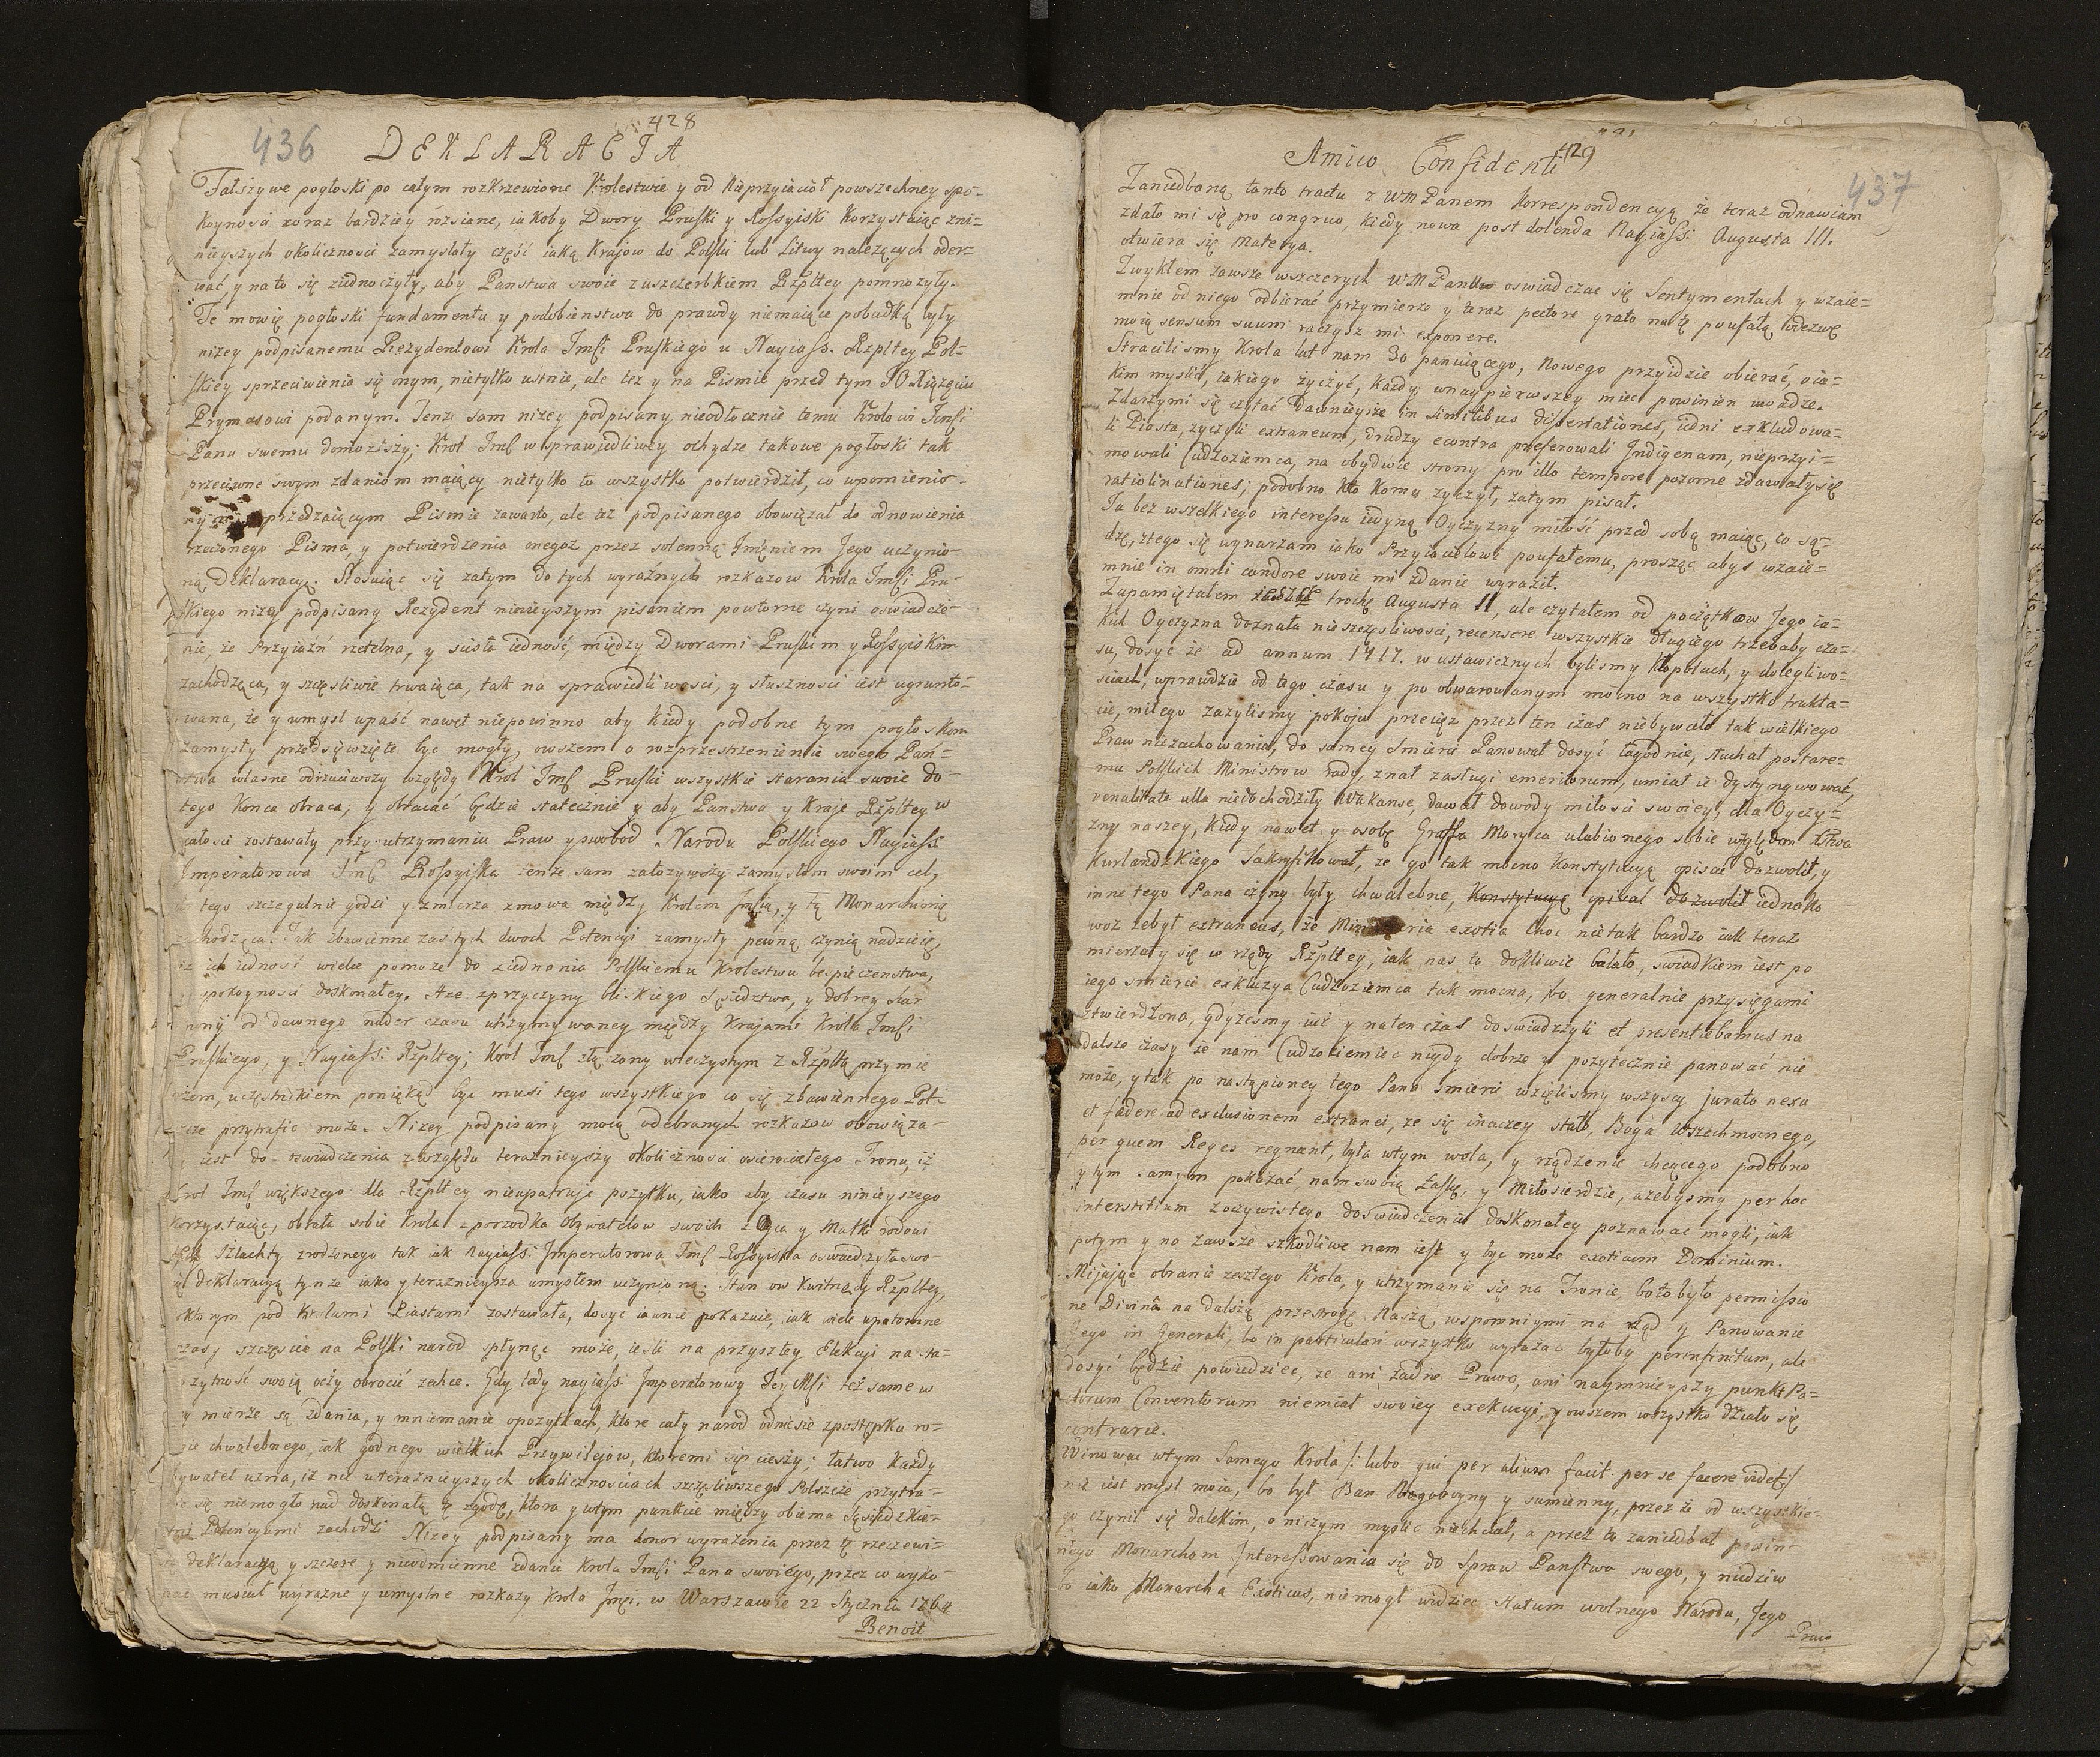 428
436
DEKLARACIA
Fałszywe pogłoski po całym rozkrzewione Krolestwie y od Nieprzyiacioł powszechney spo-
koynosci coraz bardziey rozsiane, iakoby Dwory Pruski y Rossyiski korzystaiąc z ni-
nieyszych okolicznosci zamyslały część iaką Kraiow do Polski lub Litwy nalezących oder-
wać, y na to się ziednoczyły, aby Panstwa swoie z uszczerbkiem Rzpltey pomnozyły.
Te mowię pogłoski fundamentu y podobienstwa do prawdy niemaiące pobudką były
nizey podpisanemu Rezydentowi Krola Jmsi Pruskiego u Nayiass. Rzpltey Pol-
skiey sprzeciwienia się onym, nietylko ustnie, ale tez y na Pismie przed tym JO Xiązęciu
Prymasowi podanym. Tenze sam nizey podpisany nieodłocznie temu Krolowi Jmsi
Panu swemu doniozłszy; Krol Jms w sprawiedliwey ochydze takowe pogłoski tak
przeciwne swym zdaniom maiący nietylko to wszystko potwierdził, co w pomienio-
nym uprzedzaiącym Pismie zawarto, ale tez podpisanego obowiązał do odnowienia
rzeczonego Pisma, y potwierdzenia onegoz przez solenną Imieniem Jego uczynio-
ną Deklaracyą. Stosuiąc się zatym do tych wyraźnych rozkazow Krola Jmsi Pru-
skiego nizey podpisany Rezydent ninieyszym pisaniem powtorne czyni oswiadcze-
nie, że Przyiaźń rzetelna, y scisła iedność, między Dworami Pruskim y Rossyiskim
zachodząca, y szczęsliwie trwaiąca, tak na sprawiedliwosci, y słusznosci iest ugrunto-
wana, że y w mysl wpaść nawet niepowinno aby kiedy podobne tym pogłoskom
zamysły przedsięwzięte być mogły, owszem o rozprzestrzenienie swego Pan-
stwa własne odrzuciwszy względy Krol Jms Pruski wszystkie starania swoie do-
tego Konca obraca; y obracać będzie statecznie y aby Panstwa y Kraje Rzpltey w
całosci zostawały przy utrzymaniu Praw y swobod Narodu Polskiego Nayiass
Imperatorowa Jms Rossyiska tenze sam załozywszy zamysłom swoim cel,
do tego szczegulnie godzi y zmierza zmowa między Krolem Jmsią, y tą Monarchinią
zachodząca. Tak zbawienne zas tych dwoch Potencyi zamysły pewną czynią nadzieię,
iz ich iedność wiele pomoze do ziednania Polskiemu Krolestwu bespieczenstwa,
y spokoynosci doskonałey. A ze z przyczyny bliskiego Sąsiedztwa, y dobrey Har
monij od dawnego nader czasu utrzymywaney między Krajami Krola Jmsi
Pruskiego, y Nayiass: Rzpltey; Krol Jms złączony wieczystym z Rzpltą przymie
rzem, uczęstnikiem poniękąd być musi tego wszystkiego co się zbawiennego Pol-
szcze przytrafic może. Nizey podpisany mocą odebranych rozkazow obowiąza-
ny iest do oswiadczenia z względu teraznieyszy okolicznosci osierociałego Tronu, iż
Krol Jms większego dla Rzpltey nieupatruje pozytku, iako aby czasu ninieyszego
korzystaiąc, obrała sobie Krola z porzodka Obywatelow swoich z Oyca y Matki rodowi
tey Szlachty zrodzonego tak iak Nayiass: Imperatorowa Jms Rossyiska oswiadczyła swo-
ią deklaracyą tynze iako y teraznieysza umysłem uczynioną. Stan ow kwitnący Rzpltey,
w ktorym pod Krolami Piastami zostawała, dosyć iawnie pokazuie, iak wiele upatomne
czasy szczęscia na Polski narod spłynąc może, iesli na przyszłey Elekcyi na sta-
rzytność swoią oczy obrocić zechce. Gdy tedy nayiass: Imperatorowy Jey Msi też same w
tey mierze są zdania, y mniemanie o pozytkach, ktore cały narod odniesie z postępku ro-
wnie chwalebnego, iak godnego wielkich Przywilejow, ktoremi się cieszy; łatwo każdy
Obywatel uzna, iż nic w teraznieyszych okolicznosciach szczęsliwszego Polszcze przytra-
fic się niemogło nad doskonałą tę zgodę, ktora y w tym punkcie między obiema Sąsiedzkie-
mi Potencyami zachodzi. Nizey podpisany ma honor wyrazenia przez tę rzeczewi-
stą deklaracyą y szczere y nieodmienne zdanie Krola Jmsi Pana swoiego, przez co wyko-
nać musiał wyraźne y umyslne rozkazy Krola Jmci. w Warszawie 22 Stycznia 1764
Benoit
429
437
Amico Confidenti
Zaniedbaną tanto tractu z WMPanem Korrespondencyą że teraz odnawiam
zdało mi się pro congruo, kiedy nowa post dolenda Nayiass: Augusta III.
otwiera się Materya.
Zwykłem zawsze w szczerych WMPanu oswiadczac się Sentymentach y wzaie-
mnie od niego odbierać przymierzo y teraz pectore grato na tę poufałą Odezwę
moią sensum suum raczysz mi exponere.
Stracilismy Krola lat nam 30 panuiącego, Nowego przyidzie obierać, o ia-
kim myslić, iakiego życzyć, każdy w naypierwszey miec powinien uwadze.
Zdarzymi się czytać dawnieysze in similibus dissertationes, iedni exkludowa-
li Piasta, zyczyli extraneum, drudzy econtra preferowali Indigenam, nieprzyi-
mowali Cudzoziemca, na obydwie strony pro illo tempore pozorne zdawały się
ratiocinationes; podobno kto komu zyczył, zatym pisał.
Ja bez wszelkiego interessu iedyną Oyczyzny miłość przed sobą maiąc, co są-
dzę, z tego się wynarzam iako Przyiacielowi poufałemu, prosząc abys wzaie-
mnie in omni candore swoie mi zdanie wyraził.
Zapamiętałem ieszcze trochę Augusta II, ale czytałem od początkow Jego ia-
kich Oyczyzna doznała nieszczęsliwosci, recensere wszystkie długiego trzebaby cza-
su, dosyć że ad annum 1717. w ustawicznych bylismy kłopotach, y dolegliwo-
sciach, wprawdzie od tego czasu y po obwarowanym mocno na wszystko trakta-
cie, miłego zazylismy pokoju przeciąż przez ten czas niebywało tak wielkiego
Praw niezachowania, do samey smierci Panował dosyć łagodnie, słuchał postare-
mu Polskich Ministrow rady, znał zasługi emeritorum, umiał ie dystyngwować,
venalitate ulla nieobchodziły Wakanse, dawał dowody miłosci swoiey, dla Oyczy-
zny naszey, kiedy nawet y osobę Graffa Maryca ulubionego sobie względem Xstwa
Kurlandzkiego Sakryfikował, ze go tak mocno Konstytucyą opisać dozwolił, y
inne tego Pana czyny były chwalebne, Konstytucyą opisać dozwolił iednako
woz zebył extraneus, że Ministeria exotia choc nie tak bardzo iak teraz
mierzały się w rządy Rzpltey, iak nas to dotkliwie bolało, swiadkiem iest po
iego smierci exkluzya Cudzoziemca tak mocna, bo generalnie przysięgami
stwierdzona, gdyzesmy iuż y na ten czas doswiadczyli et presentiebamus na
dalsze czasy że nam Cudzoziemiec nigdy dobrze y pozytecznie panować nie
może, y tak po nastąpioney tego Pana smierci wzięlismy wszyscy jurato nexu
et fœdere ad exclusionem extranei, ze się inaczey stało, Boga Wszechmocnego,
per quem Reges regnant, była w tym wola, y rządzenie chcącego podobno
y tym samym pokazać nam swoią Łaskę, y Miłosierdzie, azebysmy per hoc
interstitium z oczywistego doswiadczenia doskonałey poznawac mogli, iak
potym y na zawsze szkodliwe nam iest y byc moze exoticum Dominium.
Mijając obranie zeszłego Krola, y utrzymanie się na Tronie, bo to było permissio
ne Divinâ na dalszą przestrogę Naszą, wspomniymi na rząd y Panowanie
Jego in Generali, bo in particulari wszystko wyrażac byłoby perinfinitum, ale
dosyć będzie powiedziec, ze ani żadne Prawo, ani naymnieyszy punkt Pa-
ctorum Conventorum niemiał swoiey exekucyi, y owszem wszystko działo się
contrarie.
Winowac w tym Samego Krola /: lubo qui per alium facit per se facere videt:/
nie iest mysl moia, bo był Pan Bogoboyny y sumienny, przez że od wszystkie-
go czynił się dalekim, o niczym myslic niechciał, a przez to zaniedbał powin-
nego Monarchom Interessowania się do Spraw Panstwa swego, y niedziw
bo iako Monarcha Exoticus, niemogł widziec statum wolnego Narodu, Jego
Prawo